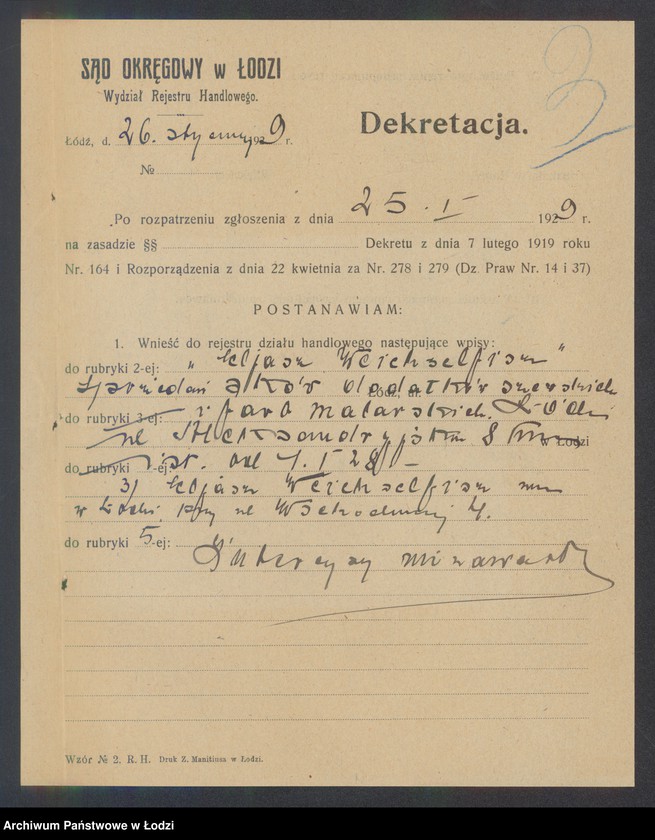 SĄD OKRĘGOWY w ŁODZI
Wydział Rejestru Handlowego.
3
Łódź, d. 26. stycznia 1929 r.
Dekretacja.
№
Po rozpatrzeniu zgłoszenia z dnia 25. I 1929 r.
na zasadzie §§ Dekretu z dnia 7 lutego 1919 roku
Nr. 164 i Rozporządzenia z dnia 22 kwietnia za Nr. 278 i 279 (Dz. Praw Nr. 14 i 37)
POSTANAWIAM:
1. Wnieść do rejestru działu handlowego następujące wpisy:
do rubryki 2-ej: „Eljasz Weichselfisz”
Sprzedaż dodatków szewskich
Łódź, ul.
do rubryki 3-ej: i farb malarskich. Łódź
ul Aleksandryjska 8 w Łodzi
do rubryki -ej: ist. od 1.I 28
3) Eljasz Weichselfisz
w Łodzi, przy ul Wschodniej 4.
do rubryki 5-ej: Intercyzy nie zawarł
Wzór № 2. R. H. Druk Z. Manitiusa w Łodzi.
Archiwum Państwowe w Łodzi